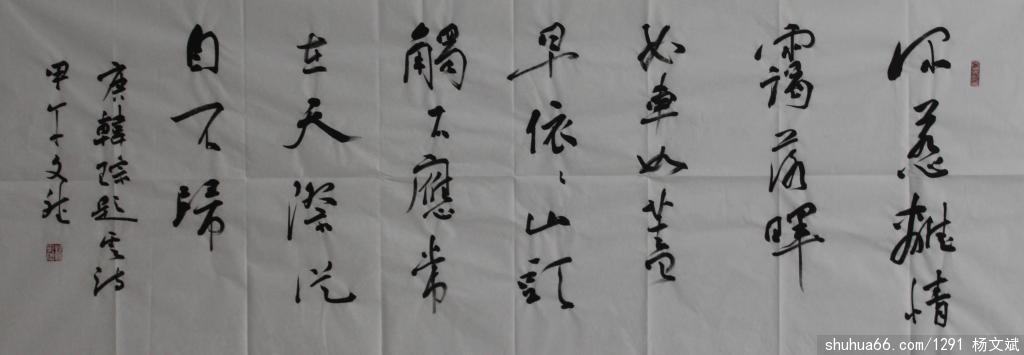 深惹離情
靄落暉
如車如蓋
早依〻山頭
觸石應常
在天際從
自不歸
唐韓琮題雲詩
甲午文斌
shuhua66.com/1291 杨文斌